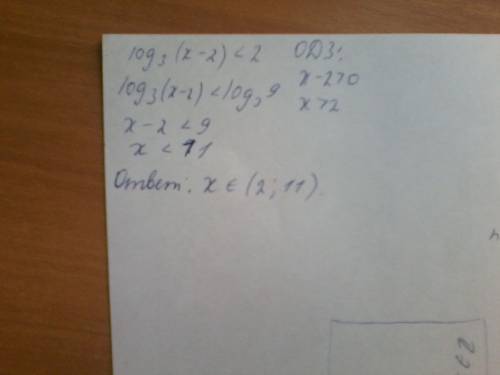 log₃(x-2)<2 ОДЗ:
log₃(x-2)<log₃9 x-2>0
x-2<9 x>2
x<11
Ответ: x∈(2;11).